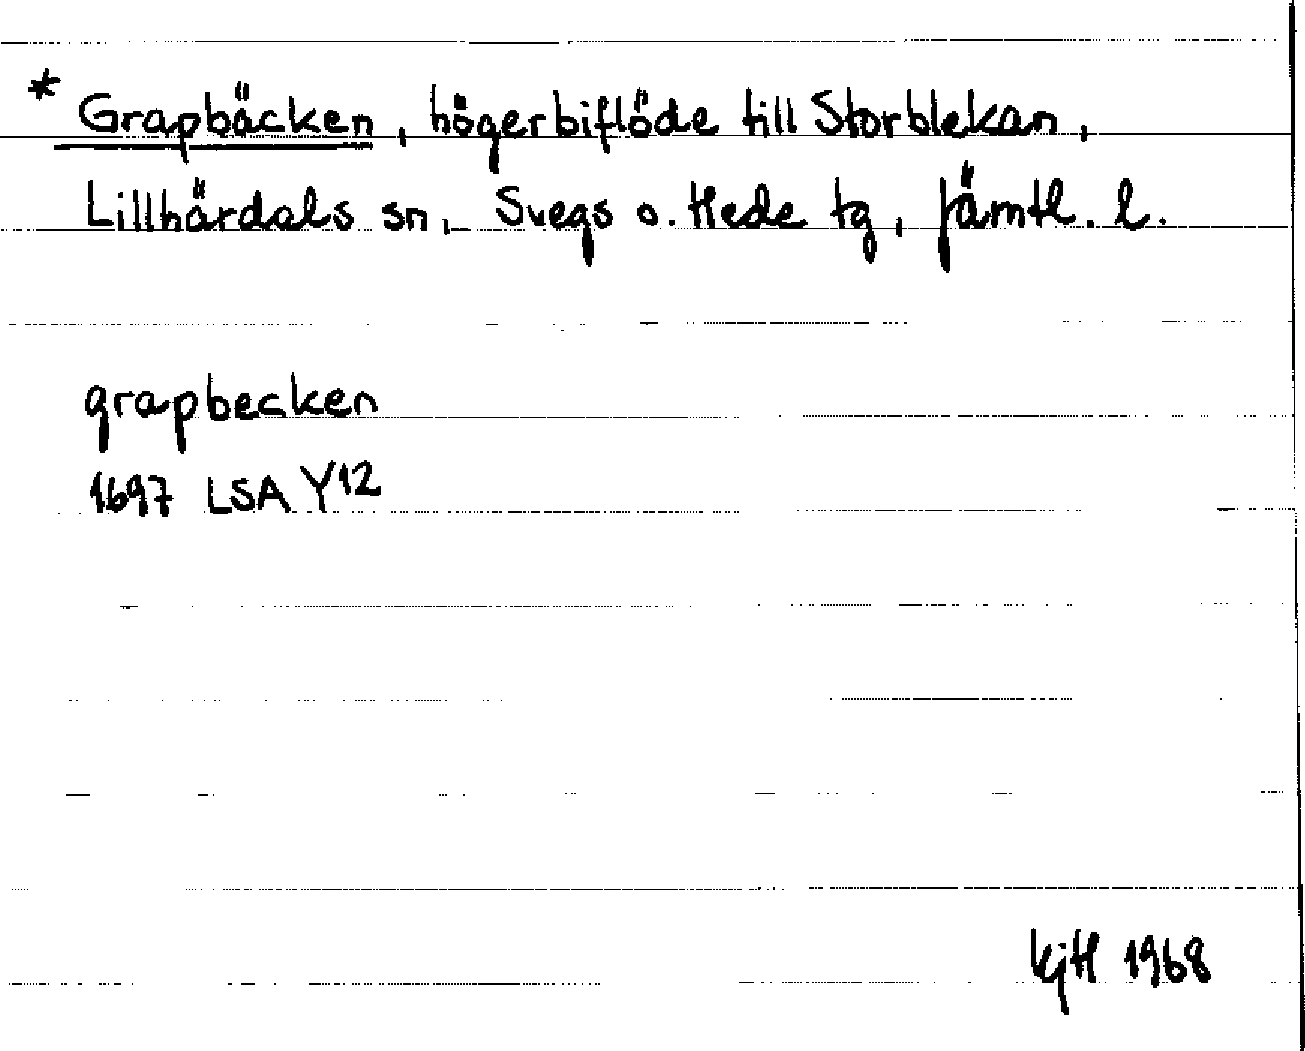 * Grapbäcken, högerbiflöde till Storblekan,
Lillhärdals sn, Svegs o. Hede tg, Jämtl. l.
grapbecken
1697 LSA Y12
KjH 1968